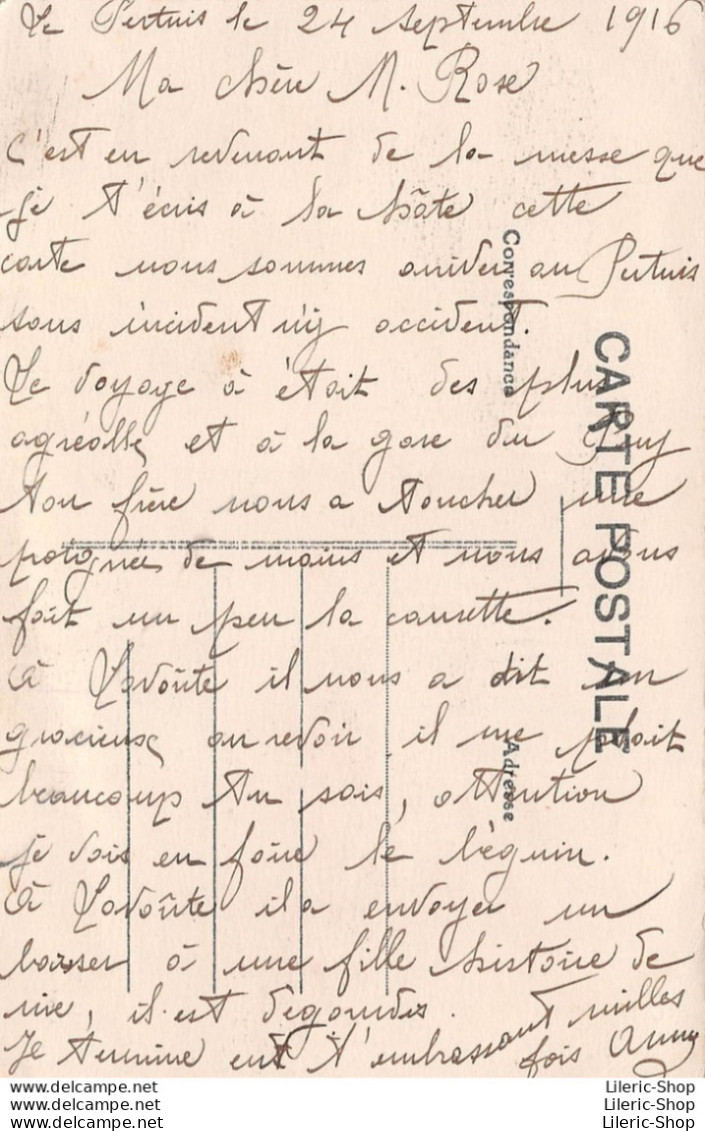 Le Pertuis le 24 septembre 1916
Ma chère M. Rose
C'est en revenant de la messe que
je t'écris à la hâte cette
carte nous sommes arriver au Pertuis
sans incident n'y accident.
Le voyage à était des plus
agréable, et à la gare du Puy
ton frère nous a toucher une
poignée de mains et nous avons
fait un peu la causette.
à Lavoûte il nous a dit un
gracieux au revoir il me plait
beaucoup tu sais, attention
je vais en faire le béguin.
à Lavoûte il a envoyer un
baiser à une fille histoire de
rire, il est dégourdis.
Je termine ent t'embrassant milles
fois Anny
Correspondance
CARTE POSTALE
Adresse
Lileric-Shop
Lileric-Shop
Lileric-Shop